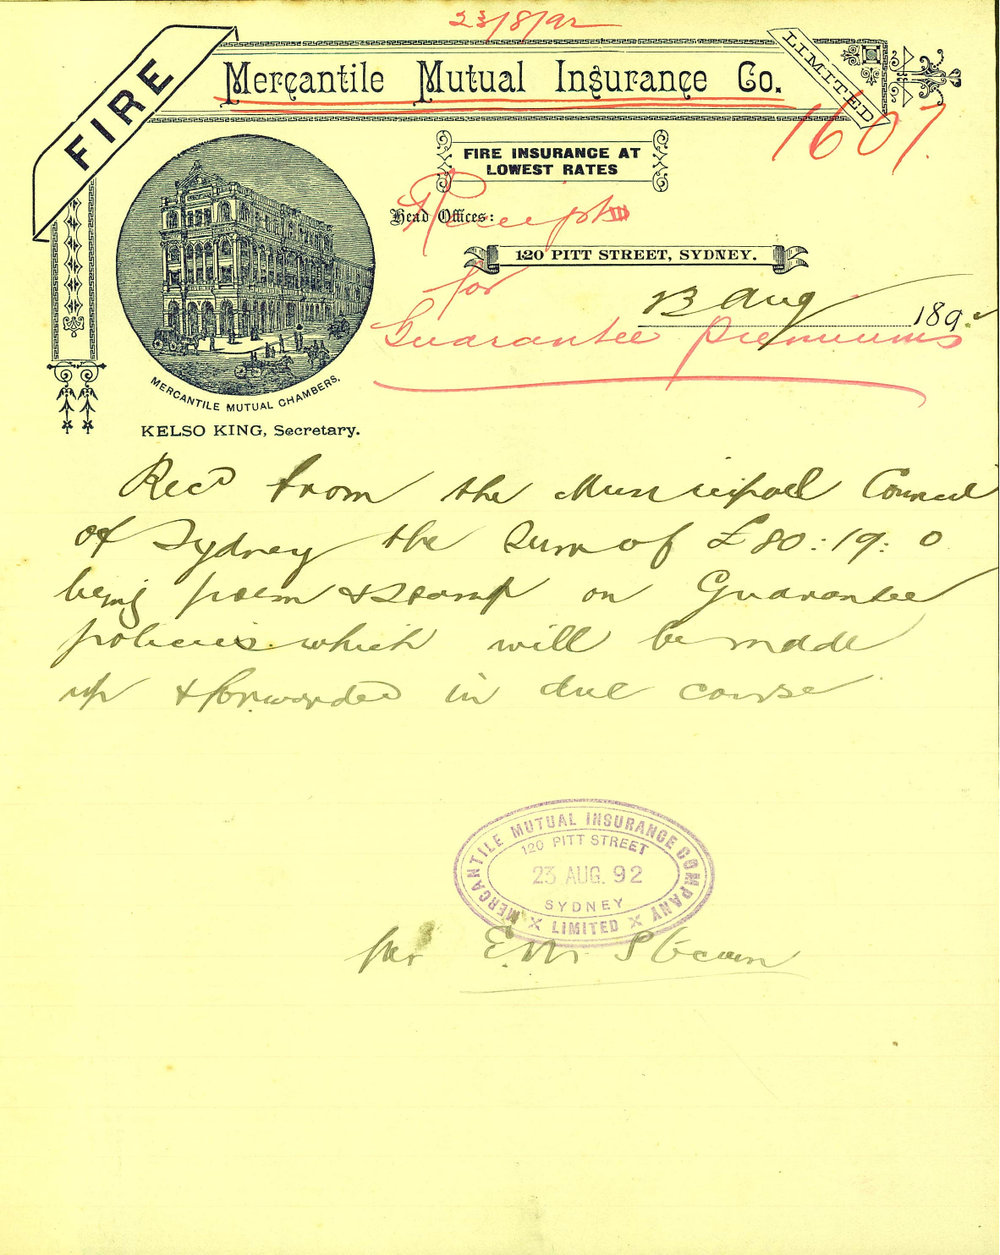 23/8/92
FIRE
Mercantile Mutual Insurance Co.
LIMITED
1607.
FIRE INSURANCE AT
LOWEST RATES
Head Offices:
Receipt
120 PITT STREET, SYDNEY.
for
Aug 189
Guarantee premiums
MERCANTILE MUTUAL CHAMBERS.
KELSO KING, Secretary.
Recd from the Municipal Council
of Sydney the sum of £80:19:0
being prem & stamp on Guarantee
policies which will be made
up & forwarded in due course
MERCANTILE MUTUAL INSURANCE COMPANY
120 PITT STREET
23 AUG. 92
SYDNEY
LIMITED
per E.M.